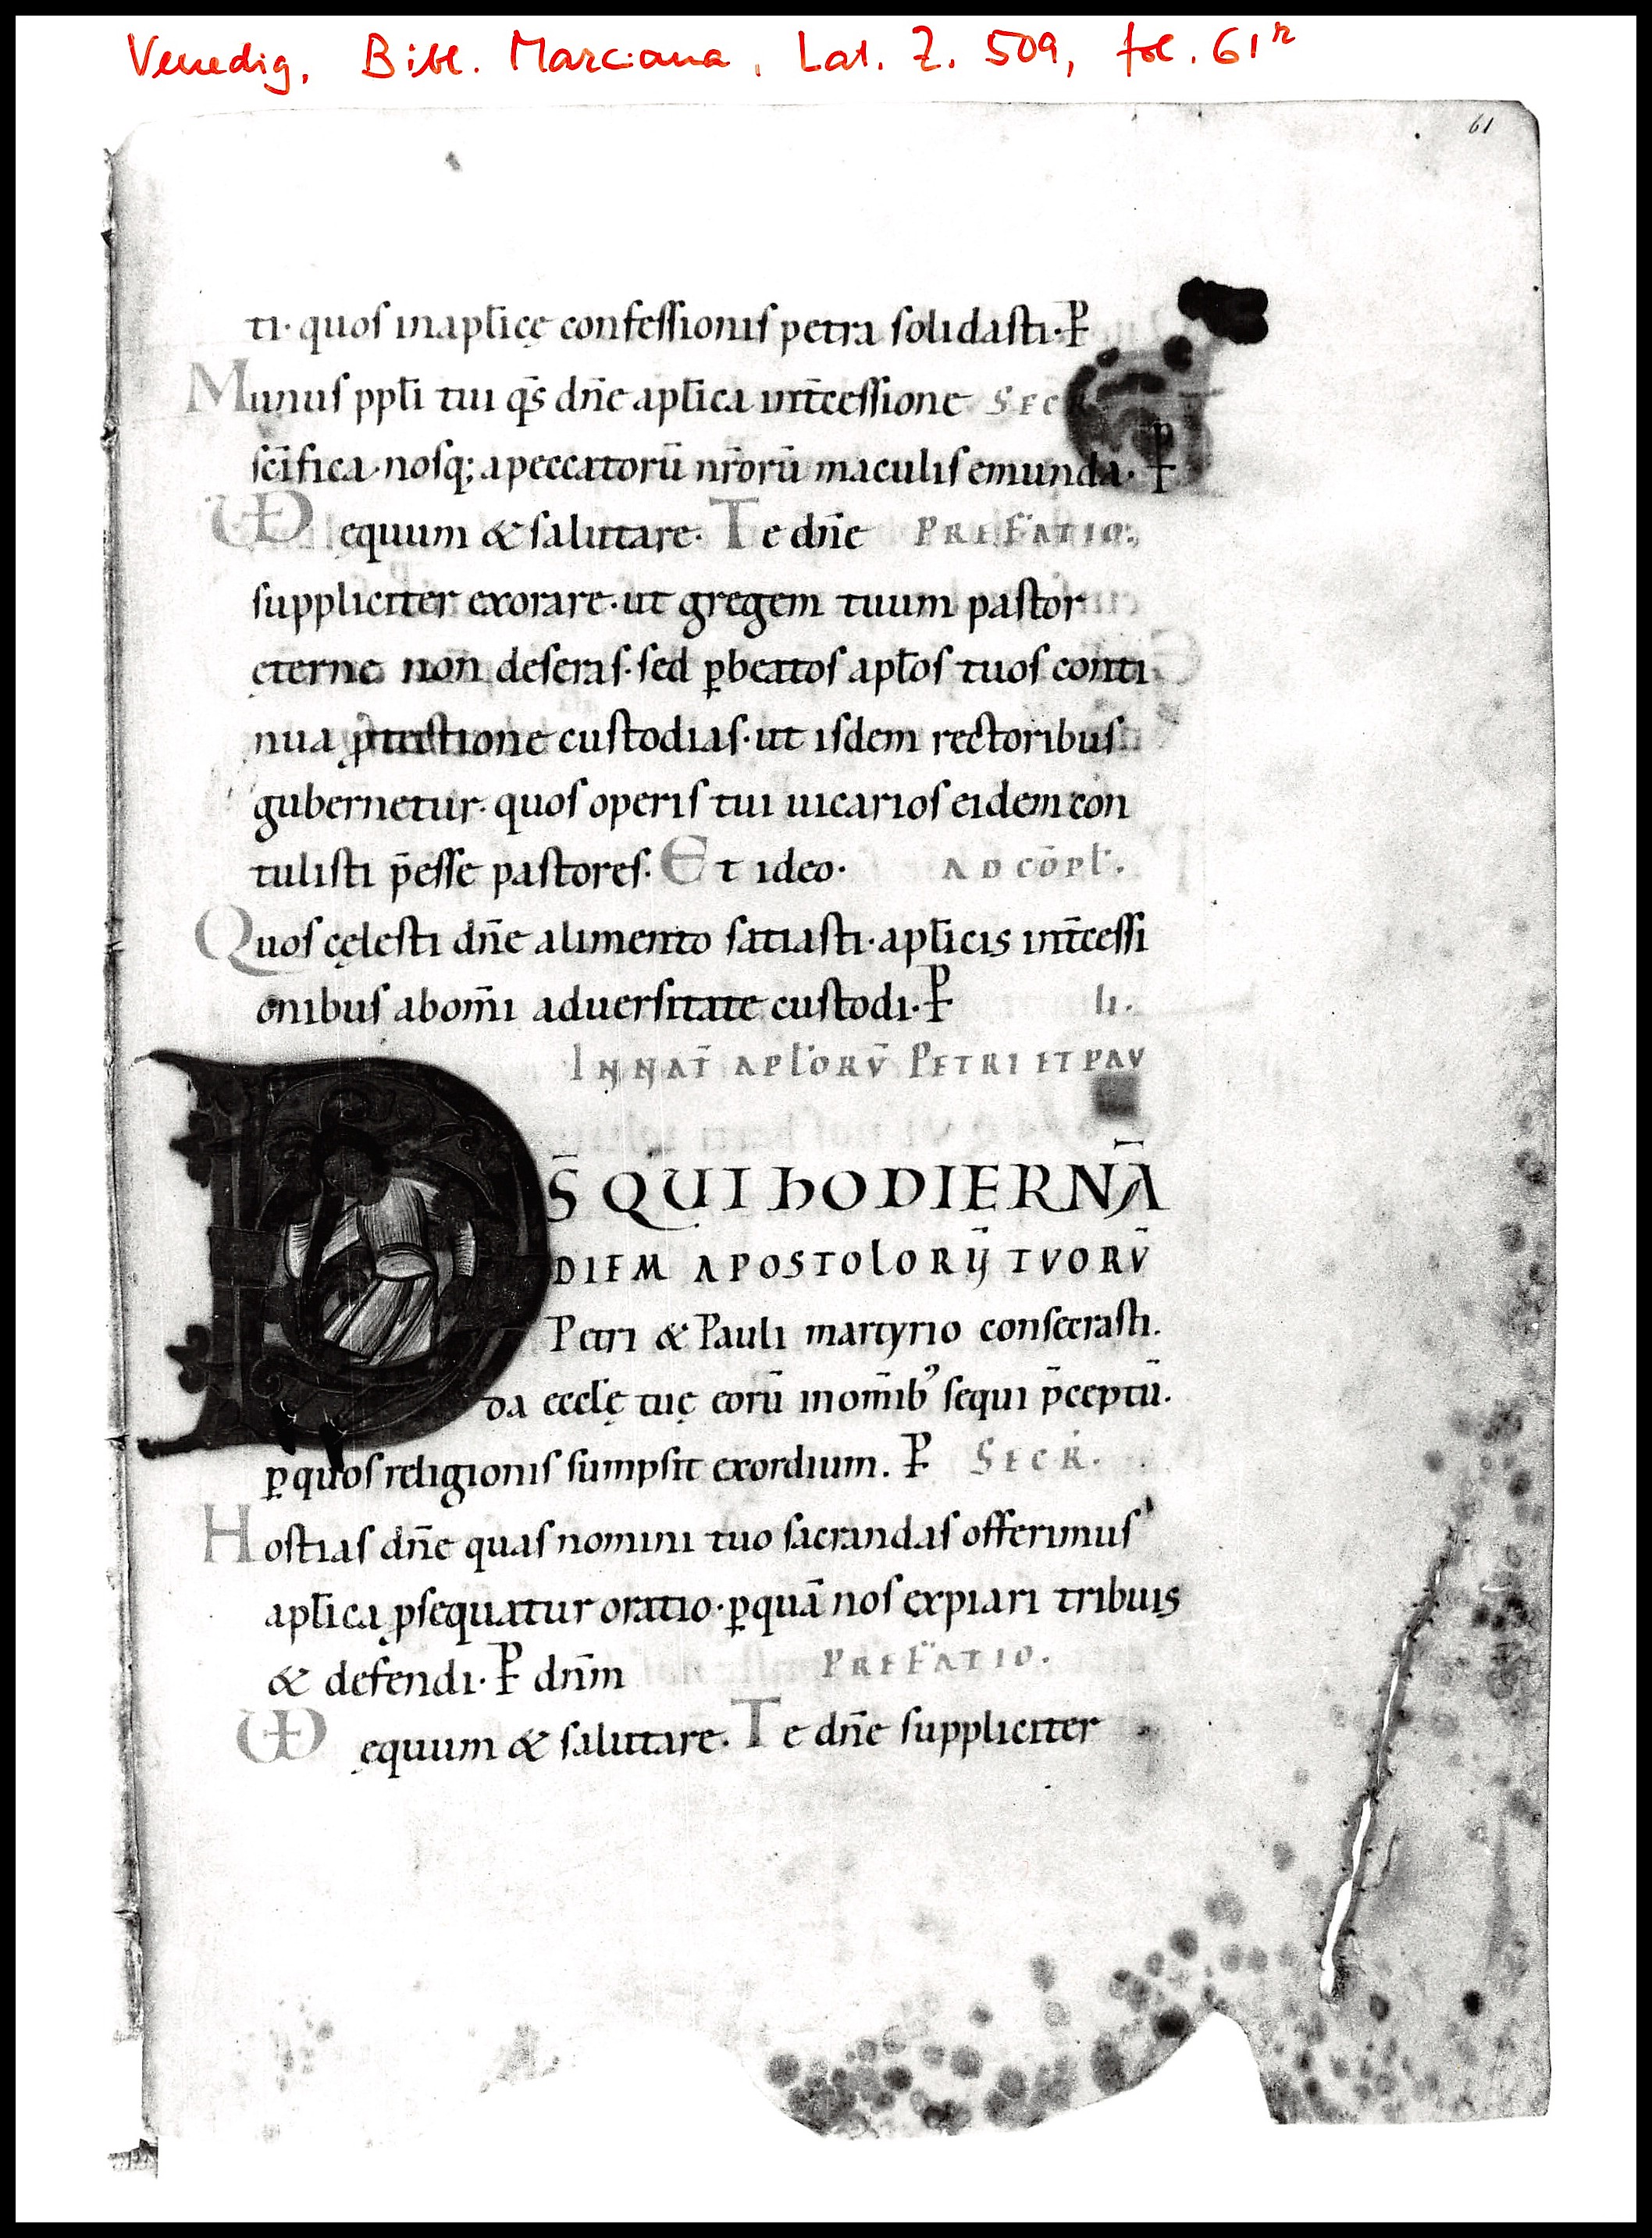 Venedig, Bibl. Marciana, Lat. Z. 509, fol. 61r
61
ti· quos inapl̄icę confessionis petra solidasti· P̵
Munus ppl̄i tui q̄s dn̄e apl̄ica int̄cessione SECR
sc̄ifica· nosq; apeccatorū nr̄orū maculis emunda· P̵
VD ęquum & salutare· Te dn̄e PREFATIO:
suppliciter exorare· ut gregem tuum pastor
ęterne non deseras· sed ꝑbeatos apl̄os tuos conti
nua ꝓtectione custodias· ut isdem rectoribus
gubernetur· quos operis tui uicarios eidem con
tulisti p̄esse pastores. Et ideo· AD CŌPL̄.
Quos cęlesti dn̄e alimento satiasti· apl̄icis int̄cessi
onibus abom̄i aduersitate custodi· P̵ li.
IN NAT̄ APL̄ORV̄ PETRI ET PAV
DS̄ QUI HODIERNĀ
DIEM APOSTOLORŪ TVORV̄
Petri & Pauli martyrio consecrasti.
da eccl̄ę tuę eorū inom̄ib᾿ sequi p̄ceptū.
ꝑquos religionis sumpsit exordium. P̵ SECR̄.
Hostias dn̄e quas nomini tuo sacrandas offerimus
apl̄ica ꝓsequatur oratio· ꝑquā nos expiari tribuis
& defendi· P̵ dn̄m PREFATIO.
VD ęquum & salutare· Te dn̄e suppliciter